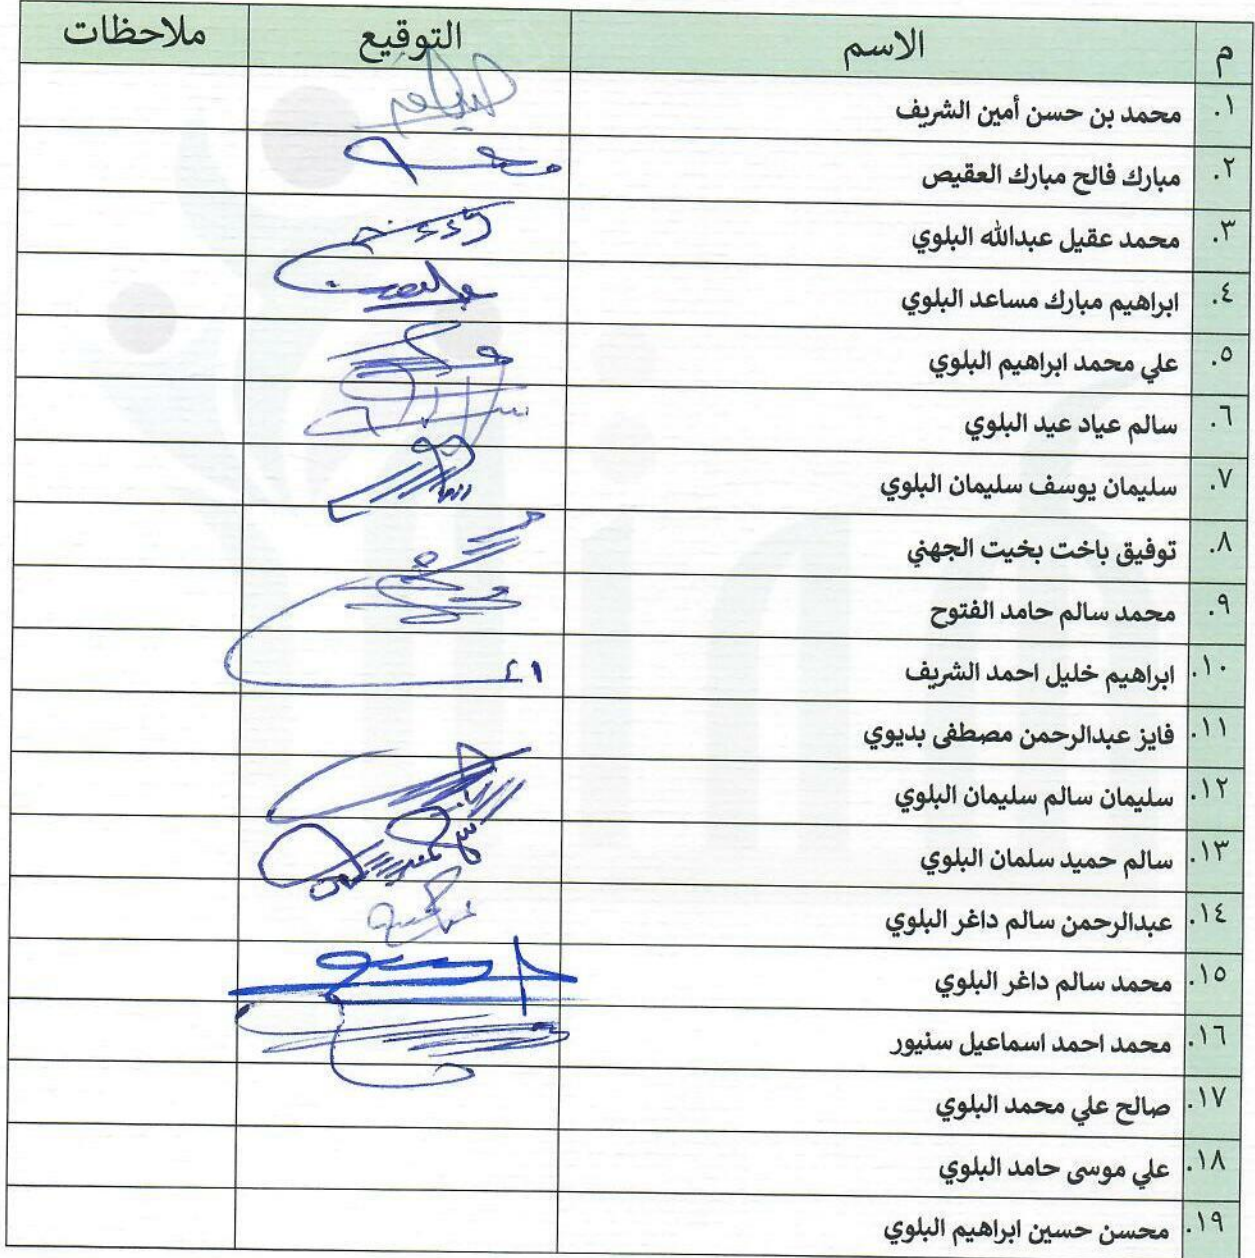 م الاسم التوقيع ملاحظات
١. محمد بن حسن أمين الشريف
٢. مبارك فالح مبارك العقيص
٣. محمد عقيل عبدالله البلوي
٤. ابراهيم مبارك مساعد البلوي
٥. علي محمد ابراهيم البلوي
٦. سالم عياد عيد البلوي
٧. سليمان يوسف سليمان البلوي
٨. توفيق باخت بخيت الجهني
٩. محمد سالم حامد الفتوح
١٠. ابراهيم خليل احمد الشريف
١١. فايز عبدالرحمن مصطفى بديوي
١٢. سليمان سالم سليمان البلوي
١٣. سالم حميد سلمان البلوي
١٤. عبدالرحمن سالم داغر البلوي
١٥. محمد سالم داغر البلوي
١٦. محمد احمد اسماعيل سنيور
١٧. صالح علي محمد البلوي
١٨. علي موسى حامد البلوي
١٩. محسن حسين ابراهيم البلوي